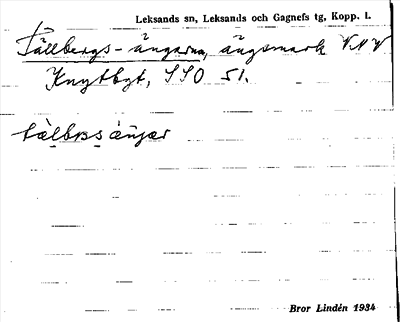 Leksands sn, Leksands och Gagnefs tg, Kopp. l.
Tällbergs-ängarna, ängsmark VNV
Knytbyt, SSO 51.
tälbɒsäŋar
Bror Lindén 1934